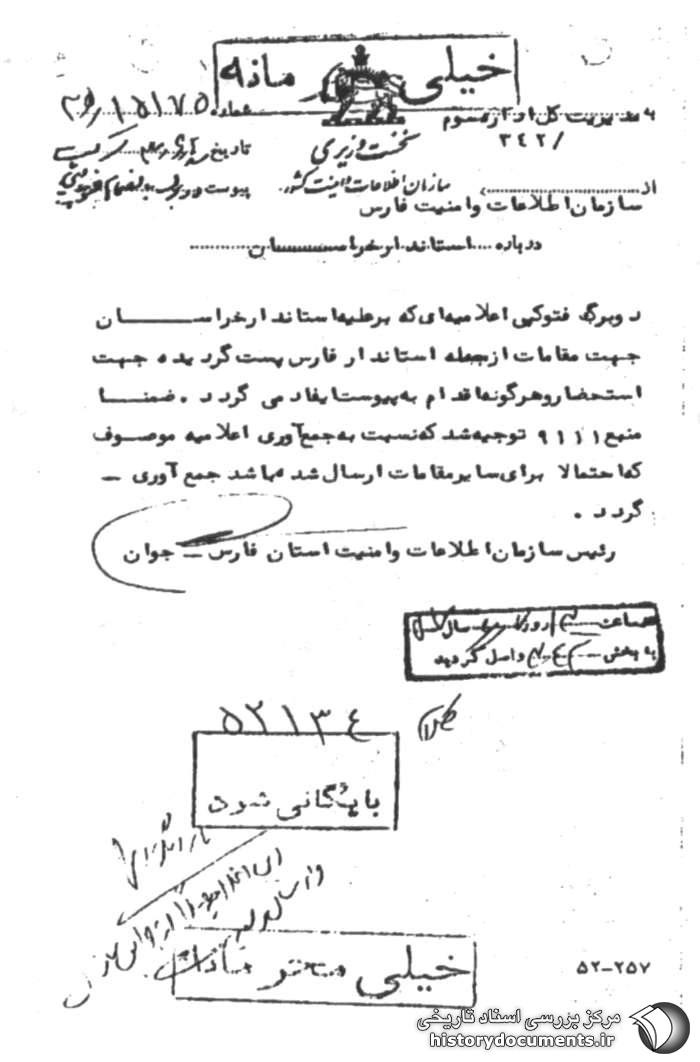 خیلی محرمانه
شماره ۱۵۱۷۵
به مدیریت کل اداره سوم
۳۴۲/
نخست وزیری
تاریخ
از سازمان اطلاعات و امنیت کشور
پیوست
سازمان اطلاعات وامنیت فارس
درباره استاندار خراسان
دوبرگ فتوکپی اعلامیه‌ای که برعلیه استاندار خراسان
جهت مقامات ازجمله استاندار فارس پست گردیده جهت
استحضار وهرگونه اقدام به پیوست ایفاد می گردد . ضمنا
منبع ۹۱۱۱ توجیه شد که نسبت به جمع آوری اعلامیه موصوف
که احتمالا برای سایر مقامات ارسال شده باشد جمع آوری
گردد .
رئیس سازمان اطلاعات وامنیت استان فارس ــ جوان
ساعت روز سال
به بخش واصل گردید
۵۲۱۳۴
بایگانی شود
خیلی محرمانه
۵۲-۲۵۷
مرکز بررسی اسناد تاریخی
historydocuments.ir